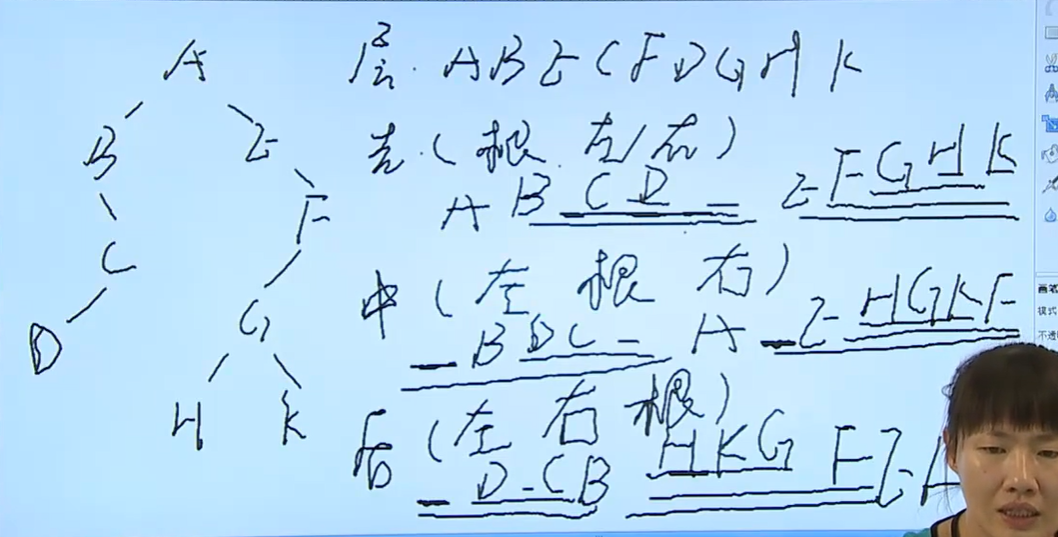 A
B E
C F
D G
H K
层. A B E C F D G H K
先.(根 左/右)
A B C D E F G H K
中 (左 根 右)
B D C A E H G K F
后 (左 右 根)
D C B H K G F E A
画笔
模式
不透明